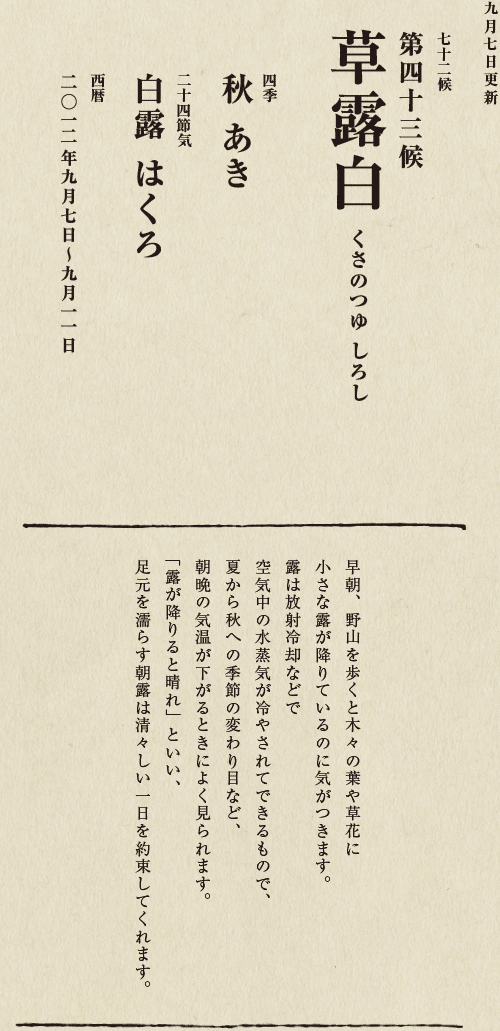 九月七日更新
七十二候
第四十三候
草露白 くさのつゆ しろし
四季
秋 あき
二十四節気
白露 はくろ
西暦
二〇一二年九月七日〜九月一一日
早朝、野山を歩くと木々の葉や草花に
小さな露が降りているのに気がつきます。
露は放射冷却などで
空気中の水蒸気が冷やされてできるもので、
夏から秋への季節の変わり目など、
朝晩の気温が下がるときによく見られます。
「露が降りると晴れ」といい、
足元を濡らす朝露は清々しい一日を約束してくれます。